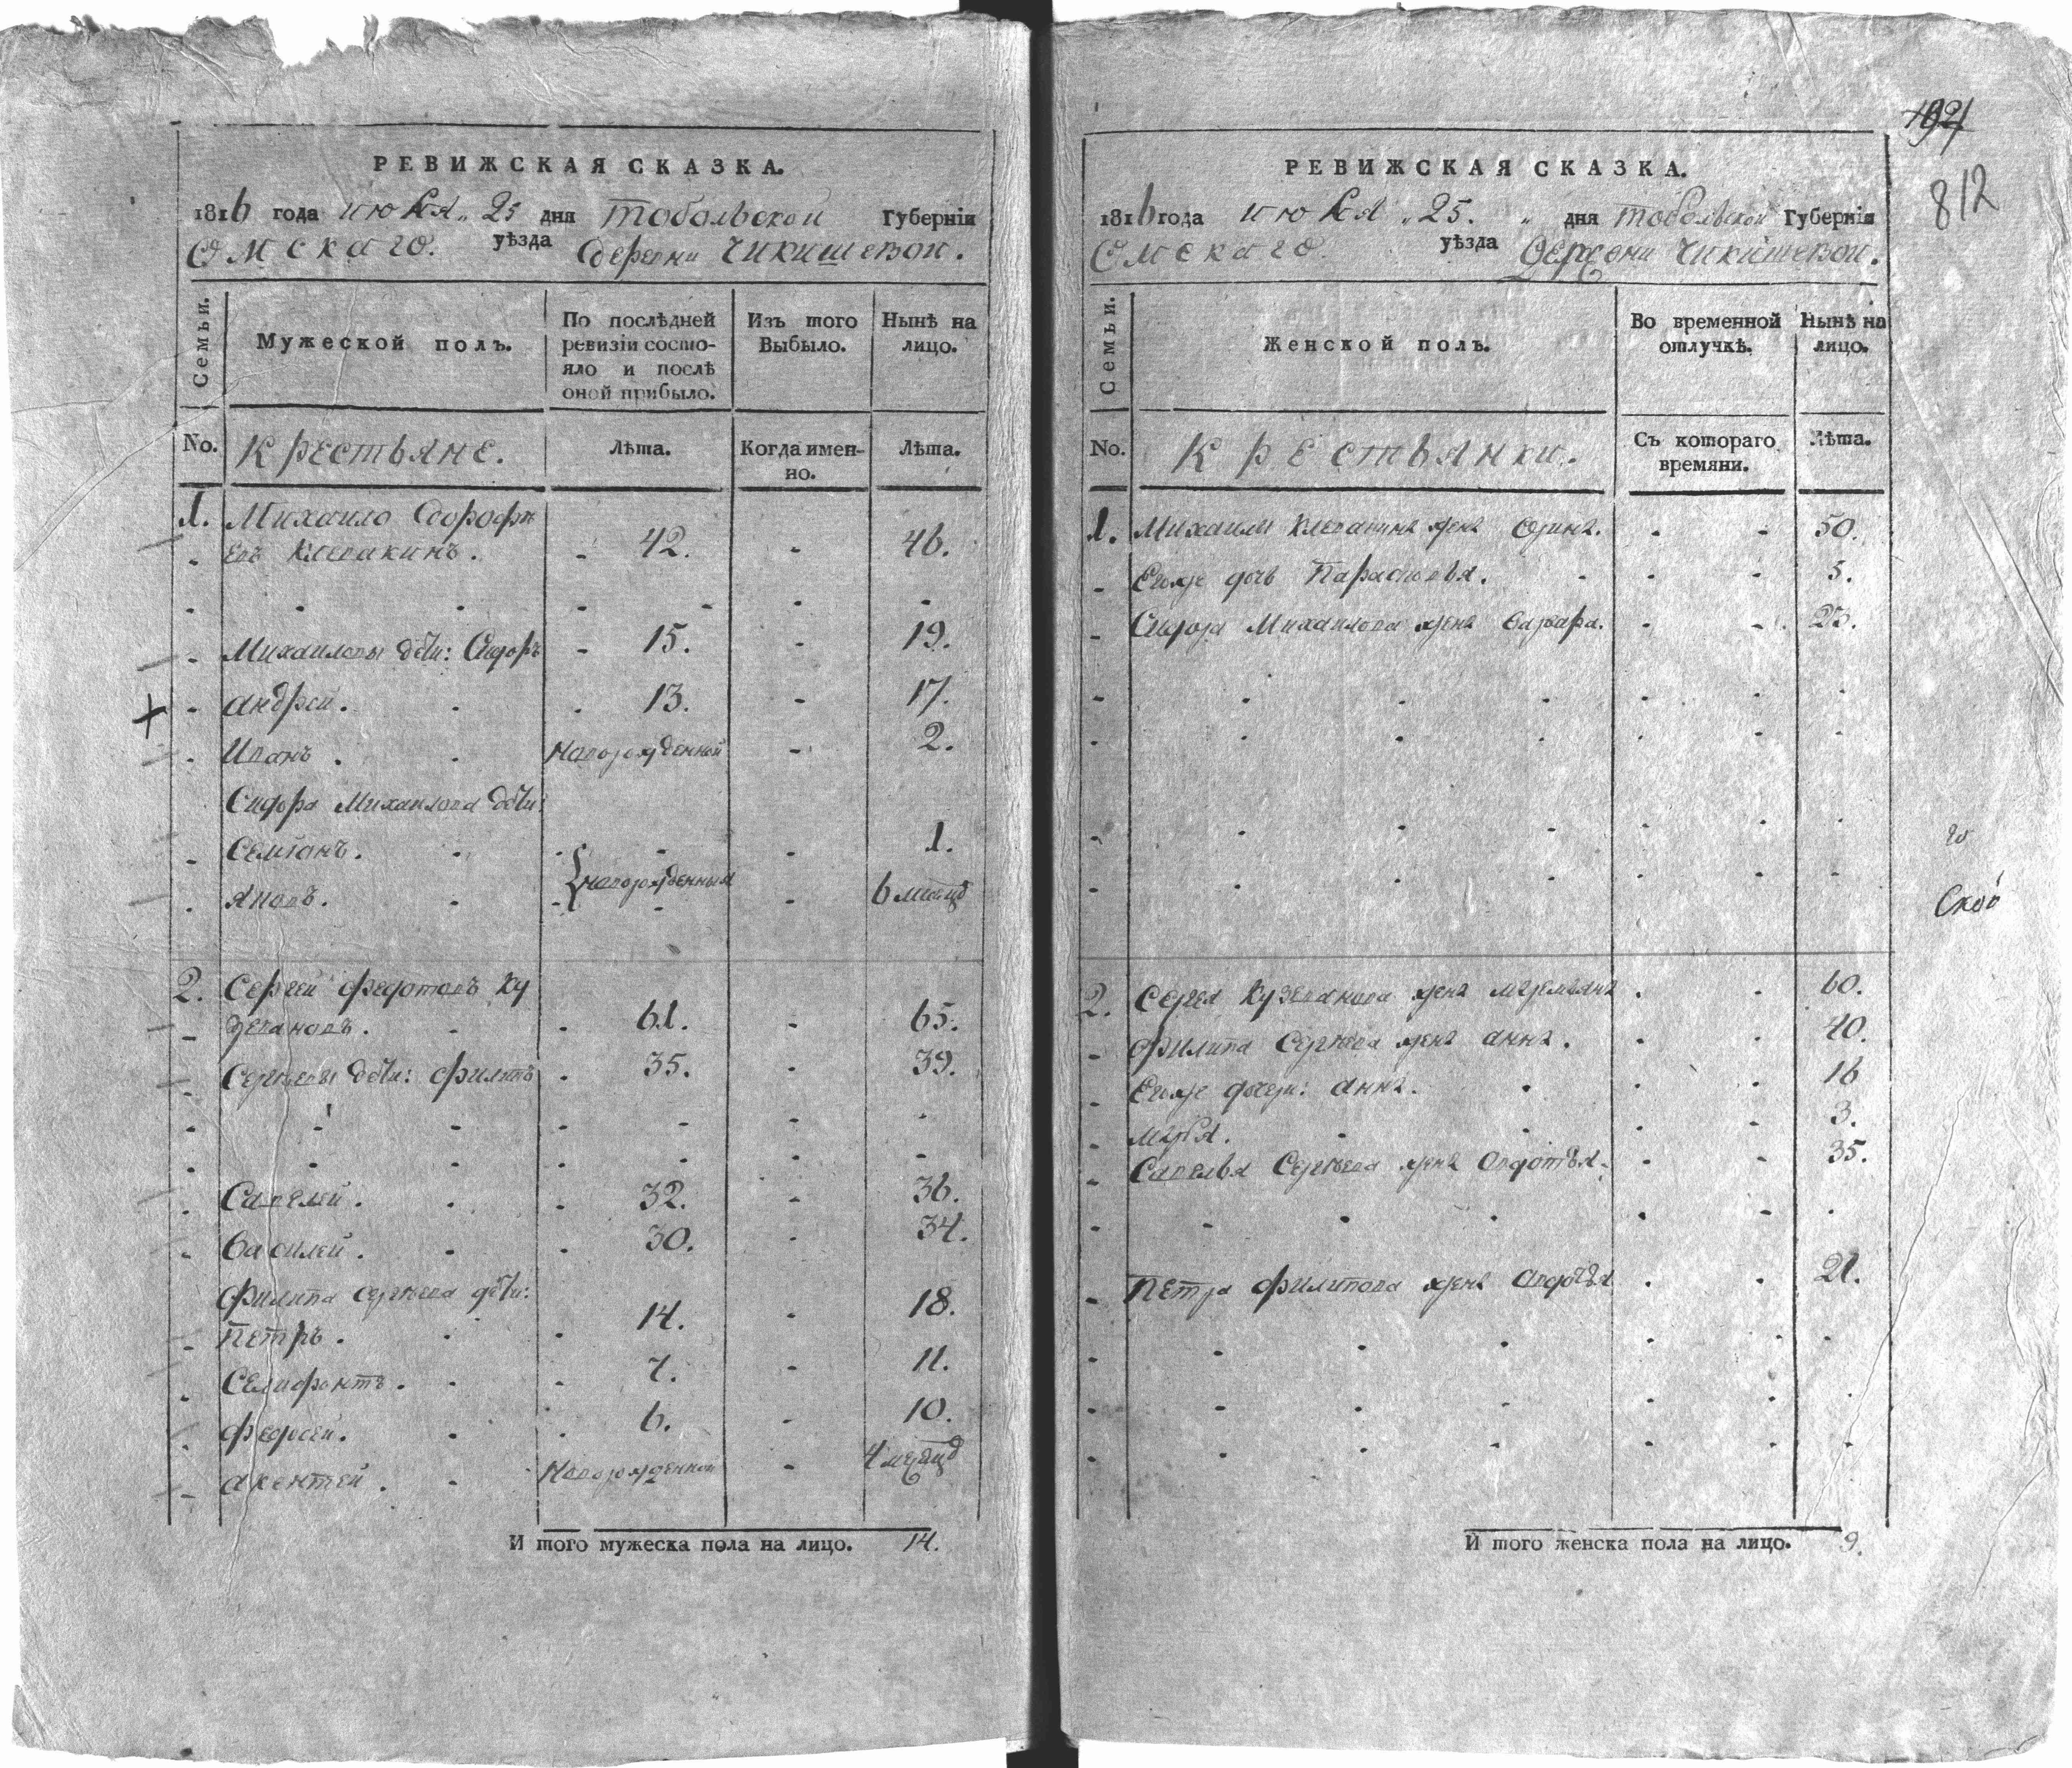 РЕВИЖСКАЯ СКАЗКА.
1816 года июля 25 дня тобольской Губернїи
Омскаго. уѣзда деревни чикишевой.
Семьи.
Мужеской полъ.
По послѣдней ревизїи состо-
яло и послѣ
оной прибыло.
Изъ того
Выбыло.
Нынѣ на
лицо.
No. крестьяне.
Лѣта.
Когда имен-
но.
Лѣта.
1. Михаило Дорофе
евъ Клевакинъ. 42. 46.
Михаиловы дѣти: Сидоръ 15. 19.
андрей. 13. 17.
Иванъ. новорожденной 2.
Сидора Михаилова дѣти:
Семїонъ. 1.
яковъ. новорожденныя 6 месяцъ
2. Сергей федотовъ Ку
зевановъ. 61. 65.
Сергѣевы дѣти: филипъ 35. 39.
Савелей. 32. 36.
василей. 30. 34.
филипа сергѣева дѣти:
петръ. 14. 18.
Селифонтъ. 7. 11.
федосей. 6. 10.
акентей. Новорожденной 4 месяцъ
И того мужеска пола на лицо. 14.
192
812
РЕВИЖСКАЯ СКАЗКА.
1816 года июля 25. дня тобольской Губернїи
Омскаго. уѣзда деревни чикишевой.
Семьи.
Женской полъ.
Во временной
отлучкѣ.
Нынѣ на
лицо.
No. крестьянки.
Съ котораго
времяни.
Лѣта.
1. Михаила клевакина жена 50.
Евоже дочь Парасковья. 5.
Сидора Михаилова жена варвара. 23.
2. Сергея Кузеванова жена 60.
филипа Сергѣева жена анна. 40.
Евоже дочери: анна. 16
марья. 3.
Савелья Сергѣева жена Овдотья. 35.
петра филипова жена авдотья 21.
го
ской
И того женска пола на лицо. 9.